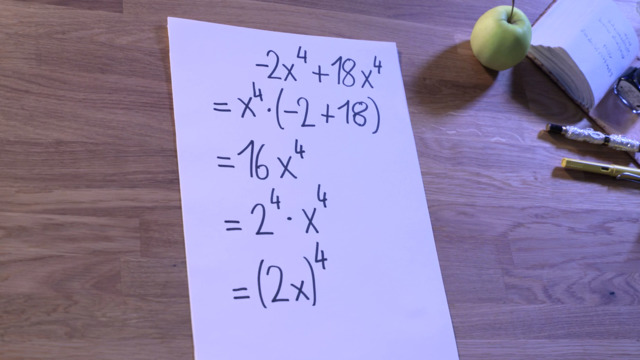 -2x⁴ + 18x⁴
= x⁴ · (-2 + 18)
= 16x⁴
= 2⁴ · x⁴
= (2x)⁴